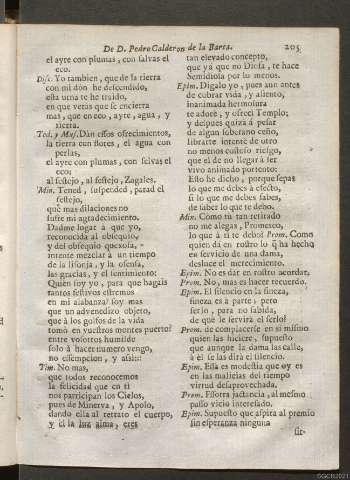 De D. Pedro Calderon de la Barca. 205
el ayre con plumas, con salvas el
eco.
Disc. Yo tambien, que de la tierra
con mi dòn he descendido,
esta urna te he traido,
en que veràs que se encierra
mas, que en eco, ayre, agua, y
tierra.
Tod. y Mus. Dàn essos ofrecimientos,
la tierra con flores, el agua con
perlas,
el ayre con plumas, con salvas el
eco:
al festejo, al festejo, Zagales.
Min. Tened, suspended, parad el
festejo,
què mas dilaciones no
sufre mi agradecimiento.
Dadme lugar à que yo,
reconocida al obsequio,
y del obsequio quexosa,
intente mezclar à un tiempo
de la lisonja, y la ofensa,
las gracias, y el sentimiento:
Quien soy yo, para que hagais
tantos festivos estremos
en mi alabanza? soy mas
que un advenedizo objeto,
que à los golfos de la vida
tomò en vuestros montes puerto?
entre vosotros humilde
solo à hacer numero vengo,
no essempcion, y assi:::
Tim. No mas,
que todos reconocemos
la felicidad que en ti
nos participan los Cielos,
pues de Minerva, y Apolo,
dando ella al retrato el cuerpo,
y èl la luz alma, eres
tan elevado concepto,
que yà que no Diosa, te hace
Semidiosa por lo menos.
Epim. Digalo yo, pues aun antes
de cobrar vida, y aliento,
inanimada hermosura
te adorè, y ofrecì Templo;
y despues quizà à pesar
de algun soberano ceño,
librarte intentè de otro
no menos costoso riesgo,
que el de no llegar à ser
vivo animado portento:
Esto he dicho, porque sepas
lo que me debes à efecto,
si lo que me debes sabes,
de saber lo que te debo.
Min. Còmo tù tan retirado
no me alegas, Prometeo,
lo que à ti te debo? Prom. Como
quien dà en rostro lo q̃ ha hecho
en servicio de una dama,
desluce el merecimiento.
Epim. No es dàr en rostro acordar.
Prom. No, mas es hacer recuerdo.
Epim. El silencio en la fineza,
fineza es à parte; pero
serlo, para no sabida,
de què le servirà el serlo?
Prom. de complacerse en sì mismo
quien las hiciere, supuesto
que aunque la dama las calle,
à èl se las dirà el silencio.
Epim. Essa es modestia que oy es
en las malicias del tiempo
virtud desaprovechada.
Prom. Essotra jactancia, al mesmo
passo vicio interesado.
Epim. Supuesto que aspira al premio
sin esperanza ninguna
sir-